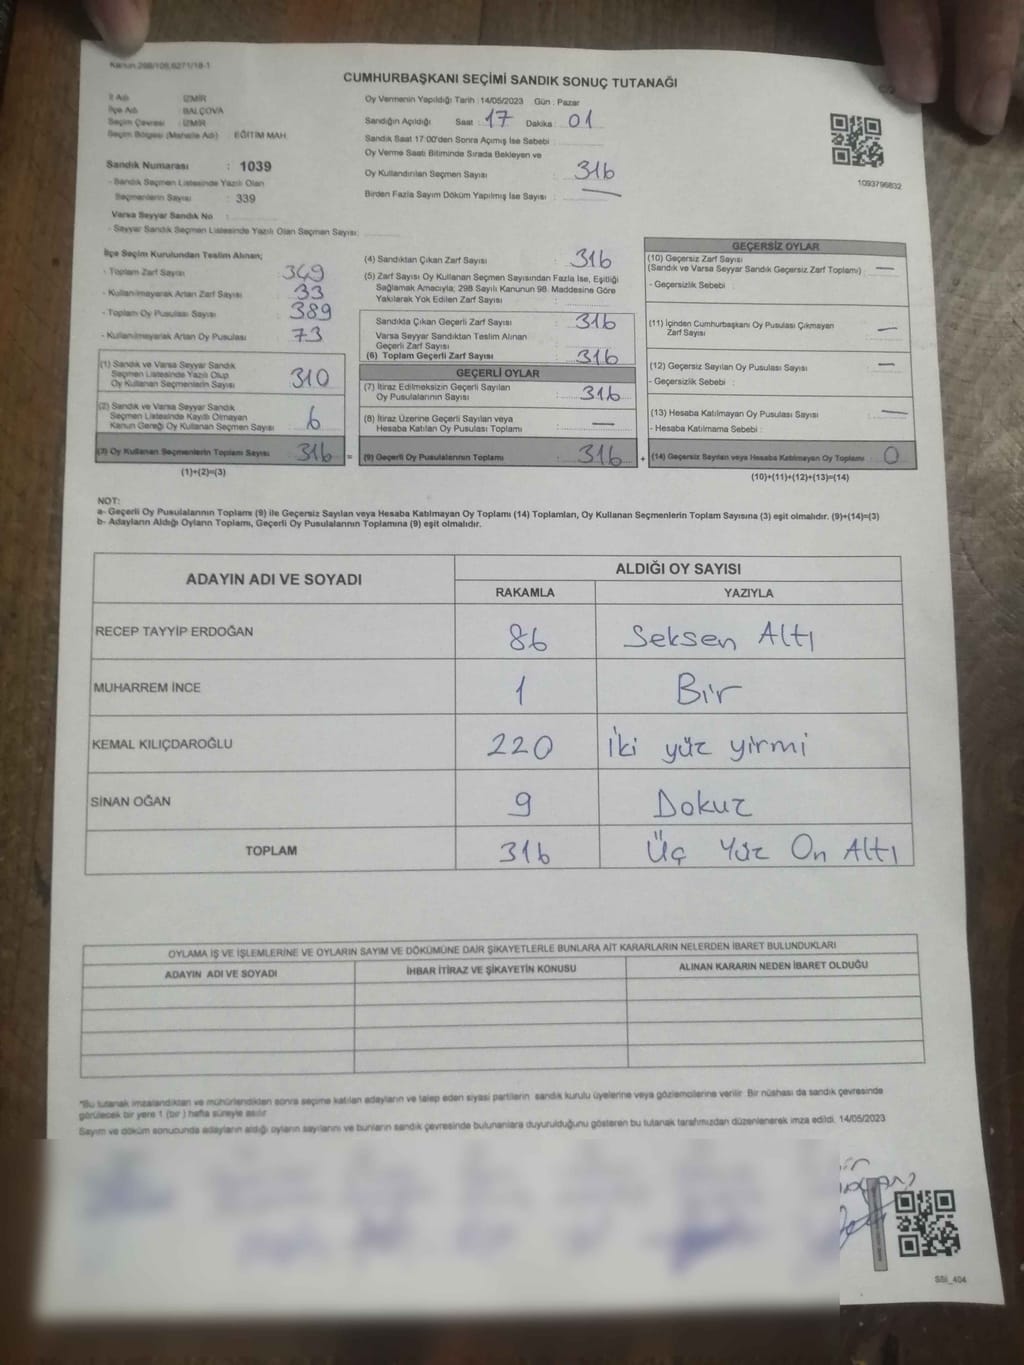 Kanun 298/108,6271/18-1
CUMHURBAŞKANI SEÇİMİ SANDIK SONUÇ TUTANAĞI
İl Adı : İZMİR
İlçe Adı : BALÇOVA
Seçim Çevresi : İZMİR
Seçim Bölgesi (Mahalle Adı) : EĞİTİM MAH.
Sandık Numarası : 1039
- Sandık Seçmen Listesinde Yazılı Olan
Seçmenlerin Sayısı : 339
Varsa Seyyar Sandık No :
- Seyyar Sandık Seçmen Listesinde Yazılı Olan Seçmen Sayısı:
Oy Vermenin Yapıldığı Tarih : 14/05/2023 Gün : Pazar
Sandığın Açıldığı Saat : 17 Dakika : 01
Sandık Saat 17:00'den Sonra Açılmış İse Sebebi :
Oy Verme Saati Bitiminde Sırada Bekleyen ve
Oy Kullandırılan Seçmen Sayısı : 316
Birden Fazla Sayım Döküm Yapılmış İse Sayısı : —
1093796832
İlçe Seçim Kurulundan Teslim Alınan;
- Toplam Zarf Sayısı : 349
- Kullanılmayarak Artan Zarf Sayısı : 33
- Toplam Oy Pusulası Sayısı : 389
- Kullanılmayarak Artan Oy Pusulası : 73
(1) Sandık ve Varsa Seyyar Sandık
Seçmen Listesinde Yazılı Olup
Oy Kullanan Seçmenlerin Sayısı : 310
(2) Sandık ve Varsa Seyyar Sandık
Seçmen Listesinde Kayıtlı Olmayan
Kanun Gereği Oy Kullanan Seçmen Sayısı : 6
(3) Oy Kullanan Seçmenlerin Toplam Sayısı : 316 =
(1)+(2)=(3)
(4) Sandıktan Çıkan Zarf Sayısı : 316
(5) Zarf Sayısı Oy Kullanan Seçmen Sayısından Fazla İse, Eşitliği
Sağlamak Amacıyla, 298 Sayılı Kanunun 98. Maddesine Göre
Yakılarak Yok Edilen Zarf Sayısı :
Sandıkta Çıkan Geçerli Zarf Sayısı : 316
Varsa Seyyar Sandıktan Teslim Alınan
Geçerli Zarf Sayısı :
(6) Toplam Geçerli Zarf Sayısı : 316
GEÇERLİ OYLAR
(7) İtiraz Edilmeksizin Geçerli Sayılan
Oy Pusulalarının Sayısı : 316
(8) İtiraz Üzerine Geçerli Sayılan veya
Hesaba Katılan Oy Pusulası Toplamı : —
(9) Geçerli Oy Pusulalarının Toplamı : 316 +
GEÇERSİZ OYLAR
(10) Geçersiz Zarf Sayısı
(Sandık ve Varsa Seyyar Sandık Geçersiz Zarf Toplamı) : —
- Geçersizlik Sebebi :
(11) İçinden Cumhurbaşkanı Oy Pusulası Çıkmayan
Zarf Sayısı : —
(12) Geçersiz Sayılan Oy Pusulası Sayısı : —
- Geçersizlik Sebebi :
(13) Hesaba Katılmayan Oy Pusulası Sayısı : —
- Hesaba Katılmama Sebebi :
(14) Geçersiz Sayılan veya Hesaba Katılmayan Oy Toplamı : 0
(10)+(11)+(12)+(13)=(14)
NOT:
a- Geçerli Oy Pusulalarının Toplamı (9) ile Geçersiz Sayılan veya Hesaba Katılmayan Oy Toplamı (14) Toplamları, Oy Kullanan Seçmenlerin Toplam Sayısına (3) eşit olmalıdır. (9)+(14)=(3)
b- Adayların Aldığı Oyların Toplamı, Geçerli Oy Pusulalarının Toplamına (9) eşit olmalıdır.
ADAYIN ADI VE SOYADI ALDIĞI OY SAYISI
RAKAMLA YAZIYLA
RECEP TAYYİP ERDOĞAN 86 Seksen Altı
MUHARREM İNCE 1 Bir
KEMAL KILIÇDAROĞLU 220 iki yüz yirmi
SİNAN OĞAN 9 Dokuz
TOPLAM 316 Üç Yüz On Altı
OYLAMA İŞ VE İŞLEMLERİNE VE OYLARIN SAYIM VE DÖKÜMÜNE DAİR ŞİKAYETLERLE BUNLARA AİT KARARLARIN NELERDEN İBARET BULUNDUKLARI
ADAYIN ADI VE SOYADI İHBAR İTİRAZ VE ŞİKAYETİN KONUSU ALINAN KARARIN NEDEN İBARET OLDUĞU
"Bu tutanak imzalandıktan ve mühürlendikten sonra seçime katılan adayların ve talep eden siyasi partilerin sandık kurulu üyelerine veya gözlemcilerine verilir. Bir nüshası da sandık çevresinde
görülecek bir yere 1 (bir) hafta süreyle asılır
Sayım ve döküm sonucunda adayların aldığı oyların sayılarını ve bunların sandık çevresinde bulunanlara duyurulduğunu gösteren bu tutanak tarafımızdan düzenlenerek imza edildi. 14/05/2023
SSI_404